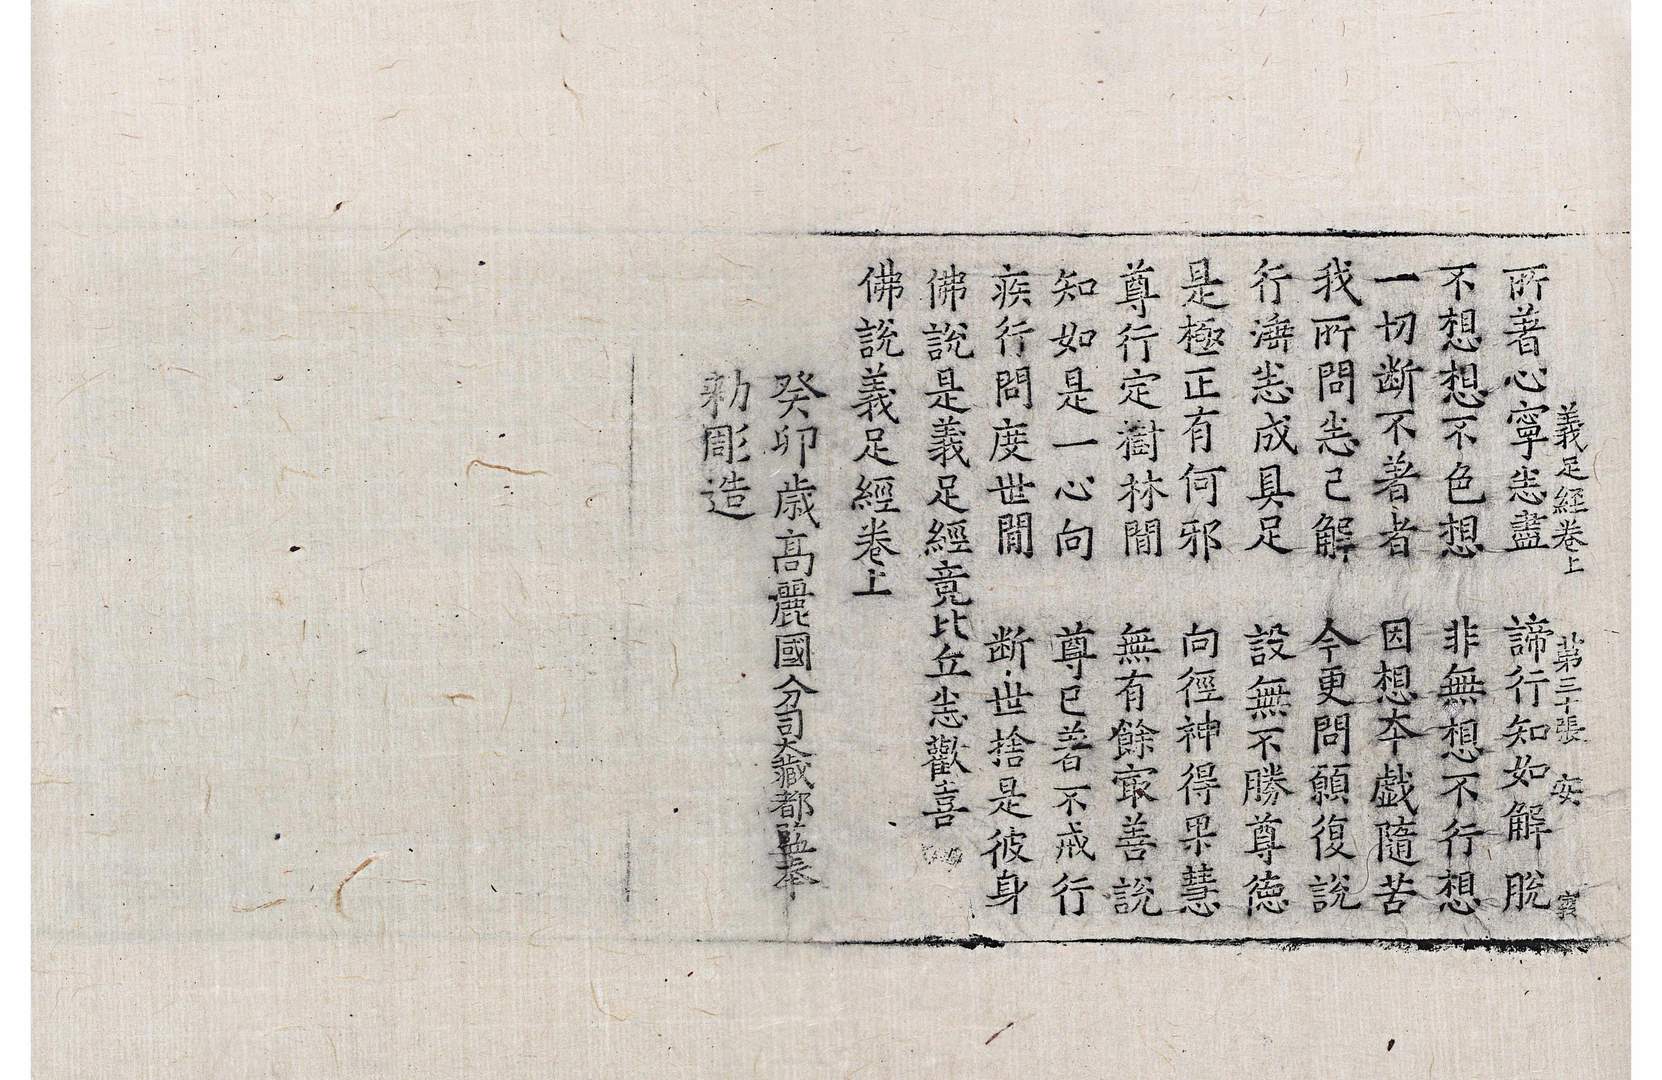 義足經卷上 第三十張 安 寶
所著心寧恚盡 諦行知如解脫
不想想不色想 非無想不行想
一切斷不著者 因想夲戱隨苦
我所問恚已解 今更問願復說
行渧恚成具足 設無不勝尊德
是極正有何邪 向徑神得果慧
尊行定樹林閒 無有餘㝡善說
知如是一心向 尊已著不戒行
疾行問度世閒 斷世捨是彼身
佛說是義足經竟比丘恚歡喜
佛說義足經卷上
癸卯歲高麗國分司大藏都監奉
勅彫造